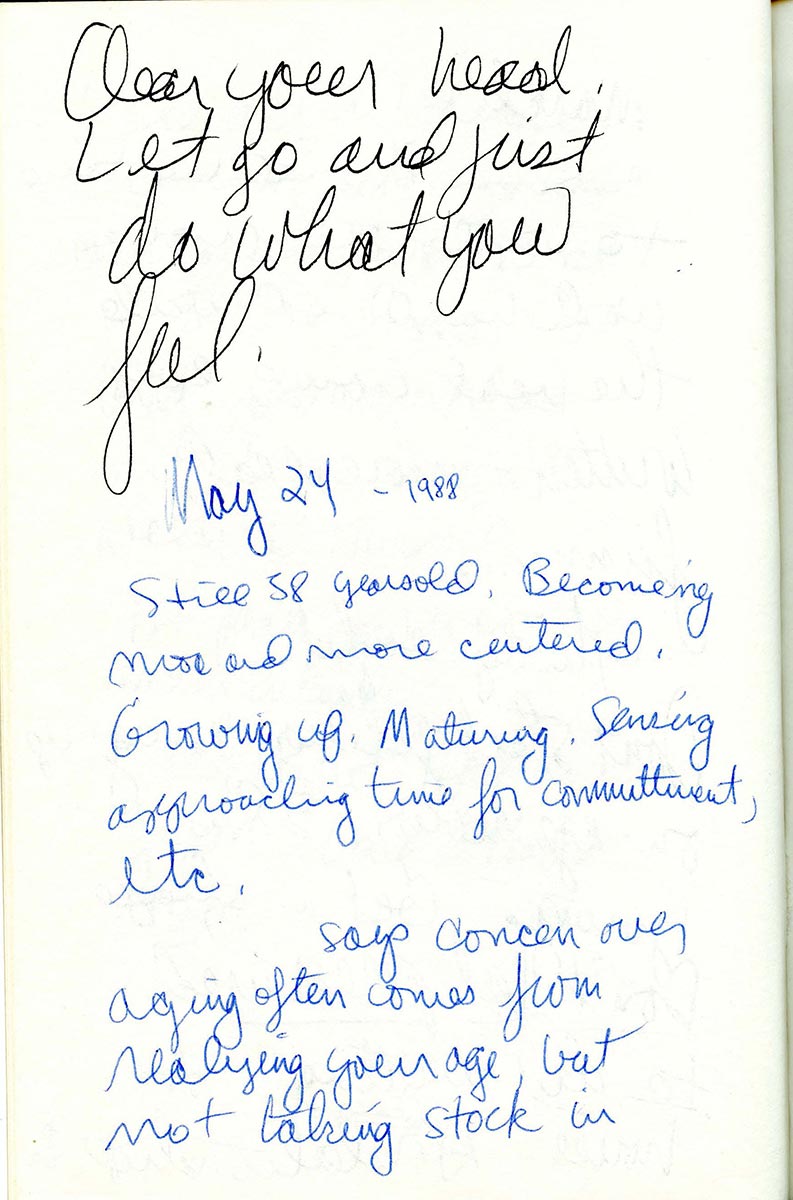 Clear your head.
Let go and just
do what you
feel.
May 24 - 1988
Still 38 years old. Becoming
more and more centered.
Growing up. Maturing. Sensing
approaching time for committment,
etc.
says concern over
aging often comes from
realizing your age, but
not taking stock in